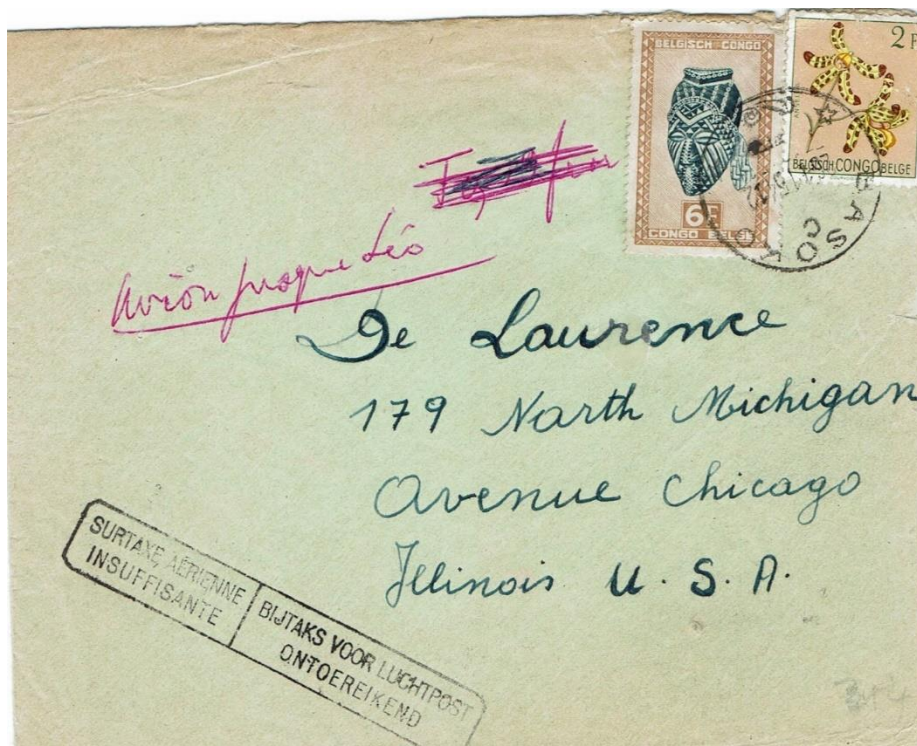 BELGISCH CONGO
6F
CONGO BELGE
2 F
BELGISCH CONGO BELGE
BASOKO
Avion jusque Léo
De Laurence
179 North Michigan
Avenue Chicago
Illinois U. S. A.
SURTAXE AÉRIENNE
INSUFFISANTE
BIJTAKS VOOR LUCHTPOST
ONTOEREIKEND